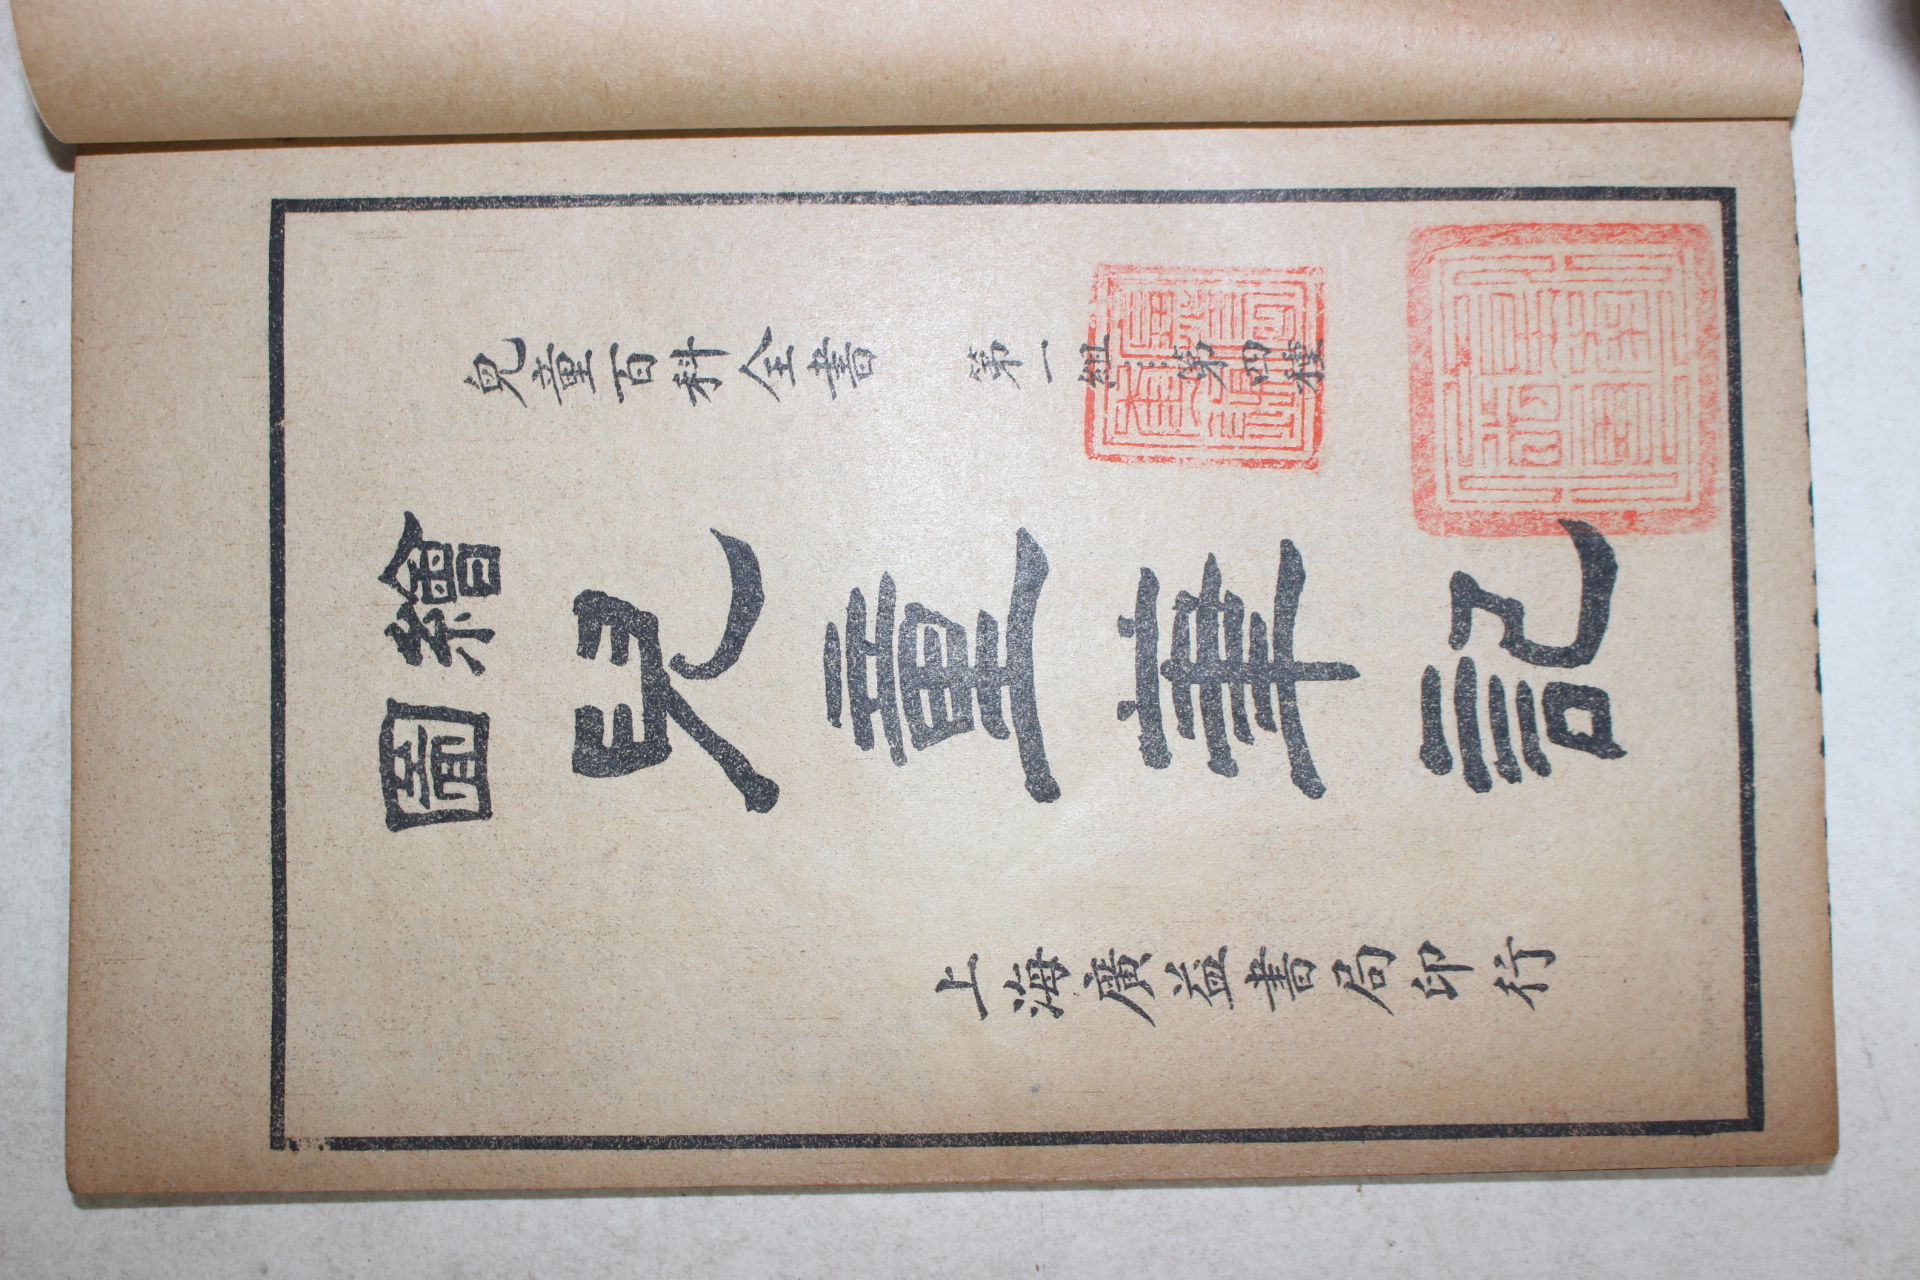 兒童百科全書　第一組…第四種
繪圖
兒童筆記
上海廣益書局印行